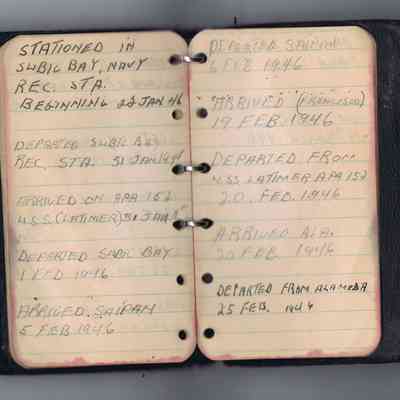 STATIONED IN
SUBIC BAY, NAVY
REC. STA.
BEGINNING 22 JAN 46
DEPARTED SUBIC BAY
REC. STA. 31 JAN 1946
ARRIVED ON APA 152
U.S.S. (LATIMER) 31 JAN
DEPARTED SUBIC BAY
1 FEB 1946
ARRIVED. SAIPAN
5 FEB 1946
DEPARTED SAIPAN
6 FEB 1946
ARRIVED (FRANCISCO)
19 FEB. 1946
DEPARTED FROM
U.S.S LATIMER APA 152
20 FEB. 1946
ARRIVED ALA.
20 FEB. 1946
DEPARTED FROM ALAMEDA
25 FEB. 1946